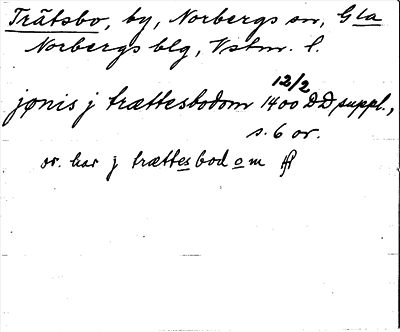 Trätsbo, by, Norbergs sn, Gla
Norbergs blg, Vstm. l.
12/2
jønis j trættesbodom 1400 DD suppl.,
s. 6 or.
or. har j trættesbod om